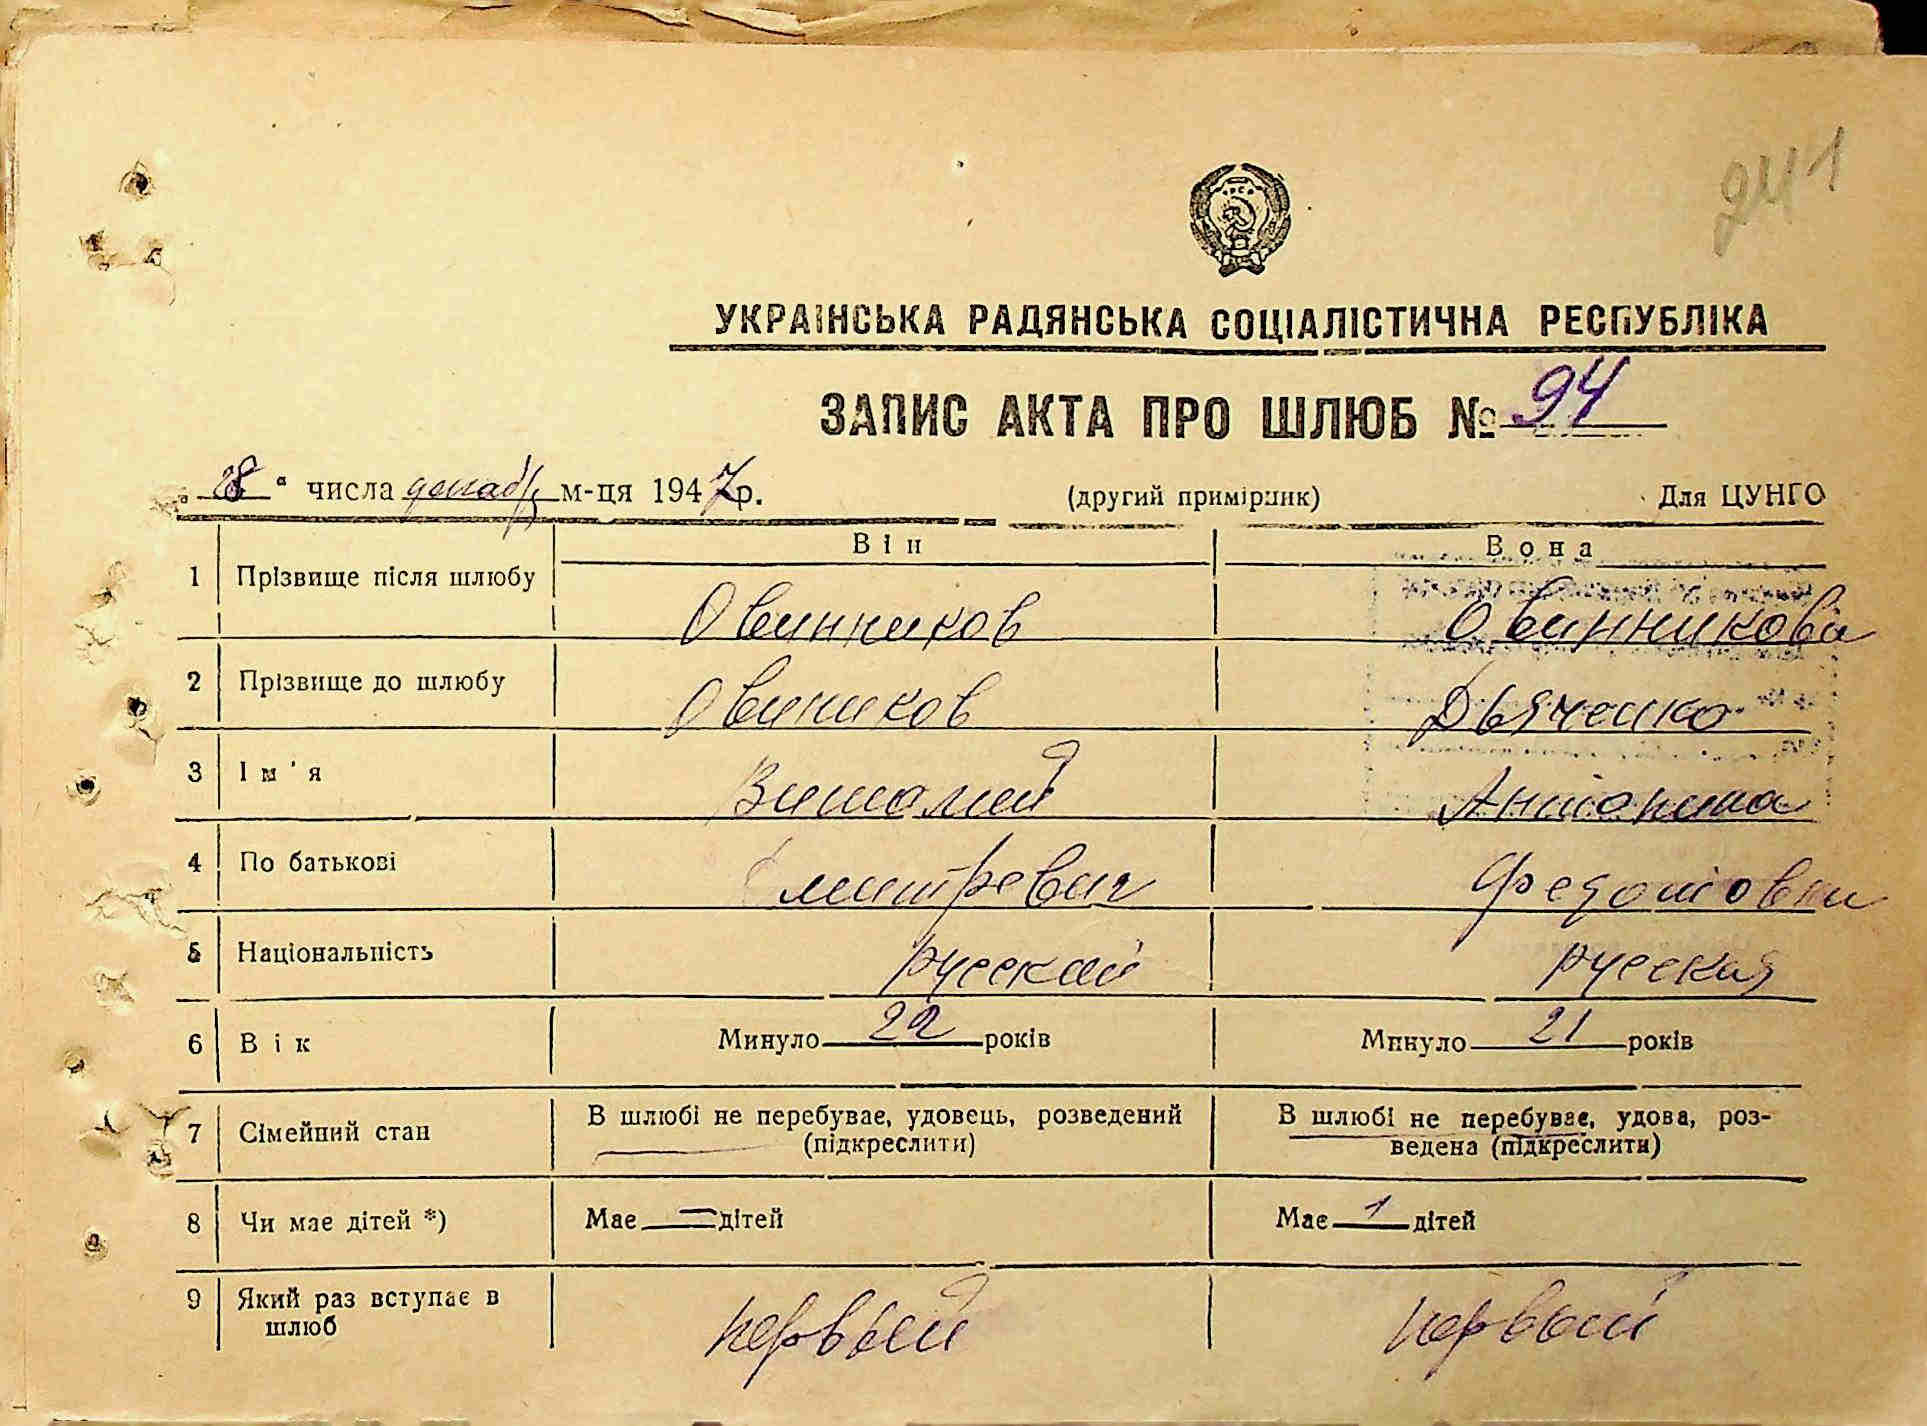 241
УКРАЇНСЬКА РАДЯНСЬКА СОЦІАЛІСТИЧНА РЕСПУБЛІКА
ЗАПИС АКТА ПРО ШЛЮБ № 94
„28“ числа декабр м-ця 1947 р. (другий примірник) Для ЦУНГО
Він Вона
1 Прізвище після шлюбу Овинников Овинникова
2 Прізвище до шлюбу Овиников Дьяченко
3 Ім'я Виталий Антонина
4 По батькові Дмитревич Федотовна
5 Національність русский русская
6 Вік Минуло 22 років Минуло 21 років
7 Сімейний стан В шлюбі не перебуває, удовець, розведений (підкреслити) В шлюбі не перебуває, удова, роз-
ведена (підкреслити)
8 Чи має дітей *) Має — дітей Має 1 дітей
9 Який раз вступає в
шлюб первый первый